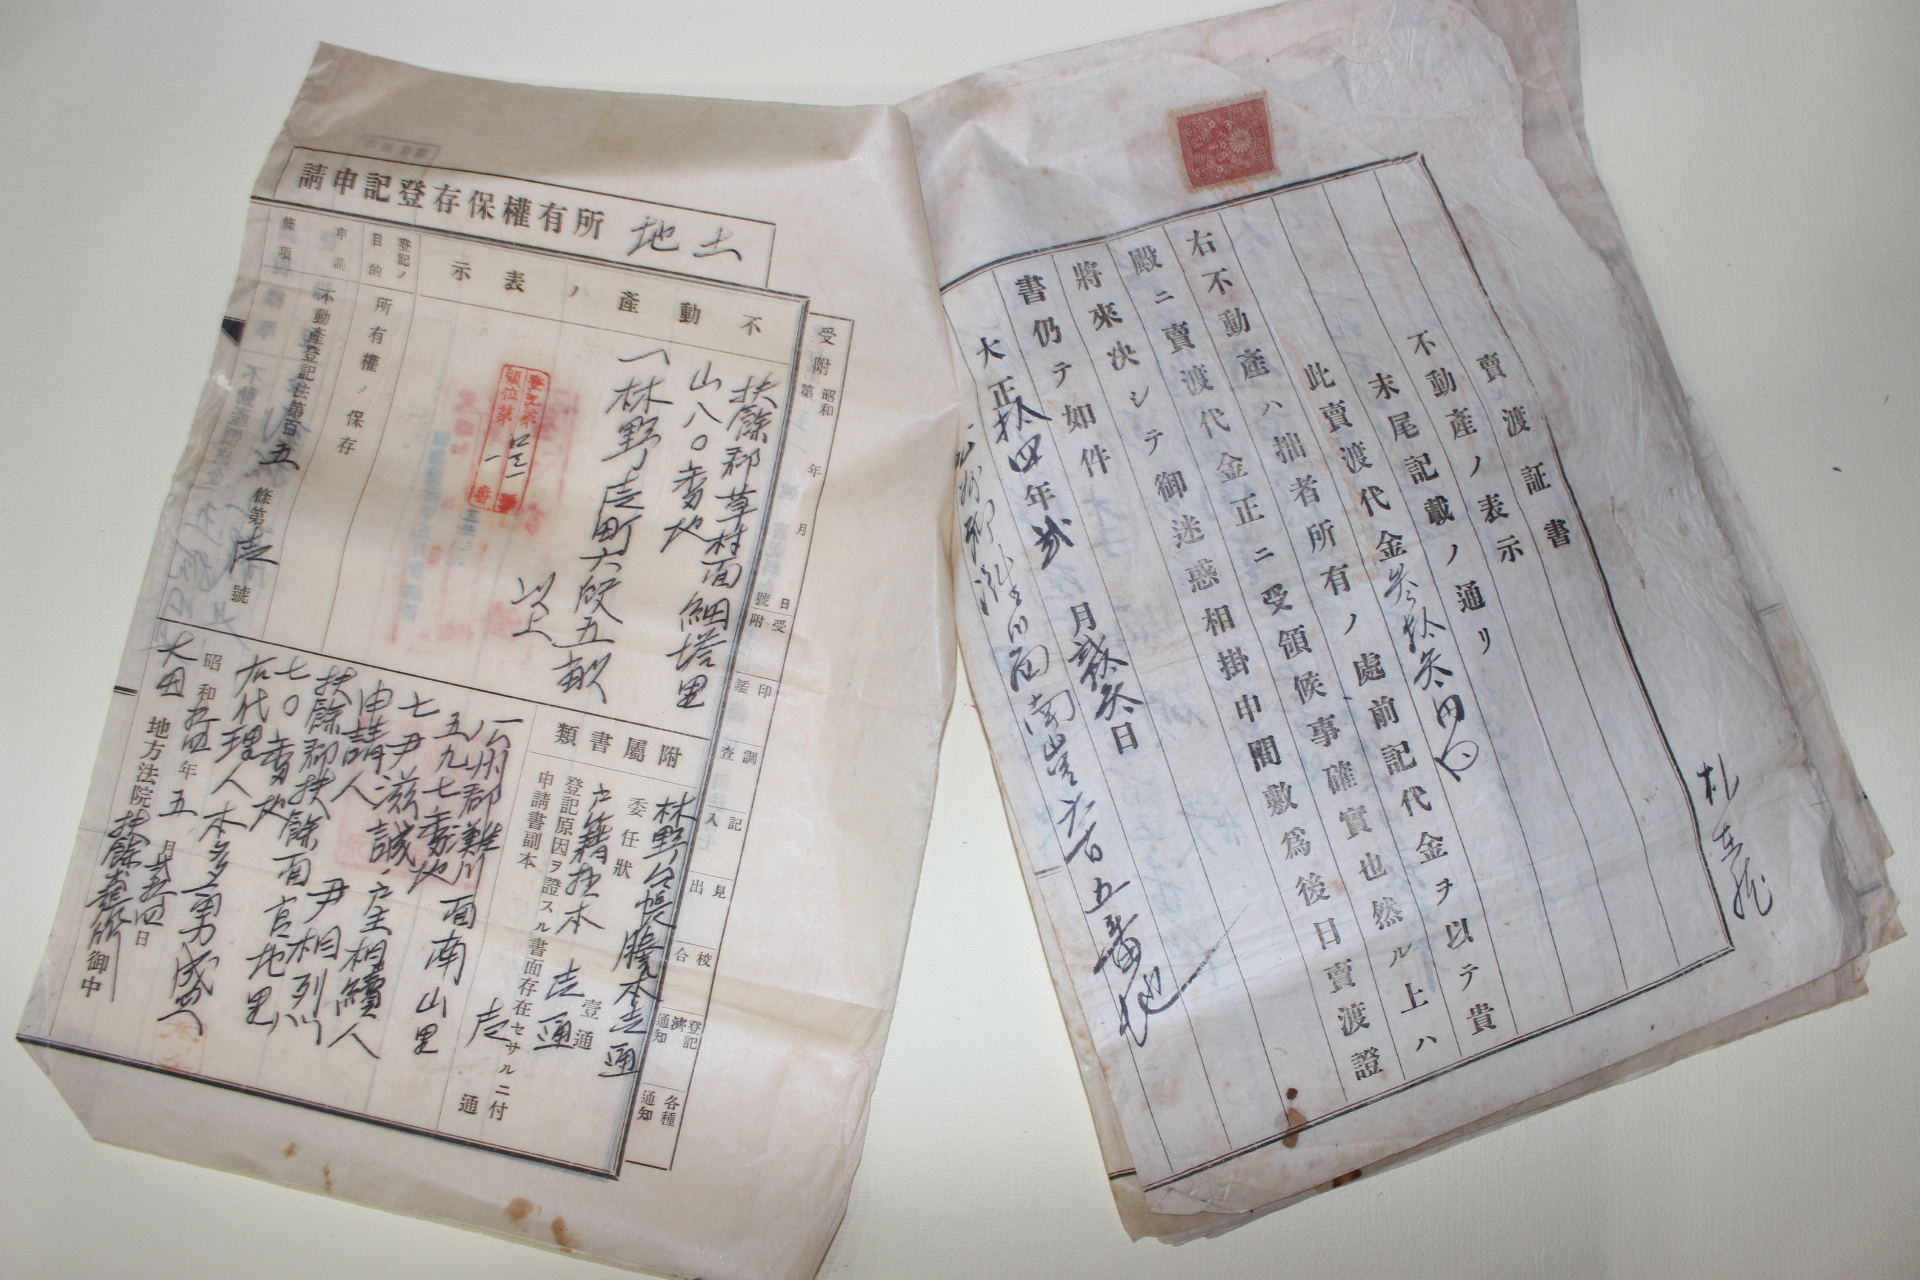 賣渡証書
不動産ノ表示
末尾記載ノ通リ
此賣渡代金参拾参円也
右不動産ハ拙者所有ノ處前記代金ヲ以テ貴
殿ニ賣渡代金正ニ受領候事確實也然ル上ハ
將來決シテ御迷惑相掛申間敷爲後日賣渡證
書仍テ如件
大正拾四年貳月貳拾参日
五番地
土地所有權保存登記申請
受附 昭和 年 月 日
第 號
受附
印鑑
調査
記入
見出
校合
登記濟通知
各種通知
不動産ノ表示
扶餘郡草村面細塔里
山八〇番地
一林野壱町六段五畝
以上
順位第一番
登記ノ目的
所有權ノ保存
申請條項
不動産登記法第百五條第壱號
附屬書類
林野台帳謄本壱通
委任狀 壹通
戸籍抄本 壱通
登記原因ヲ證スル書面存在セサルニ付
申請書副本 壱通
公州郡灘川面南山里
五九七番地
亡尹滋誠戸主相續人
申請人 尹相列
扶餘郡扶餘面官北里
七〇番地
右代理人本多勇
昭和 年五月 日
大田地方法院扶餘 御中